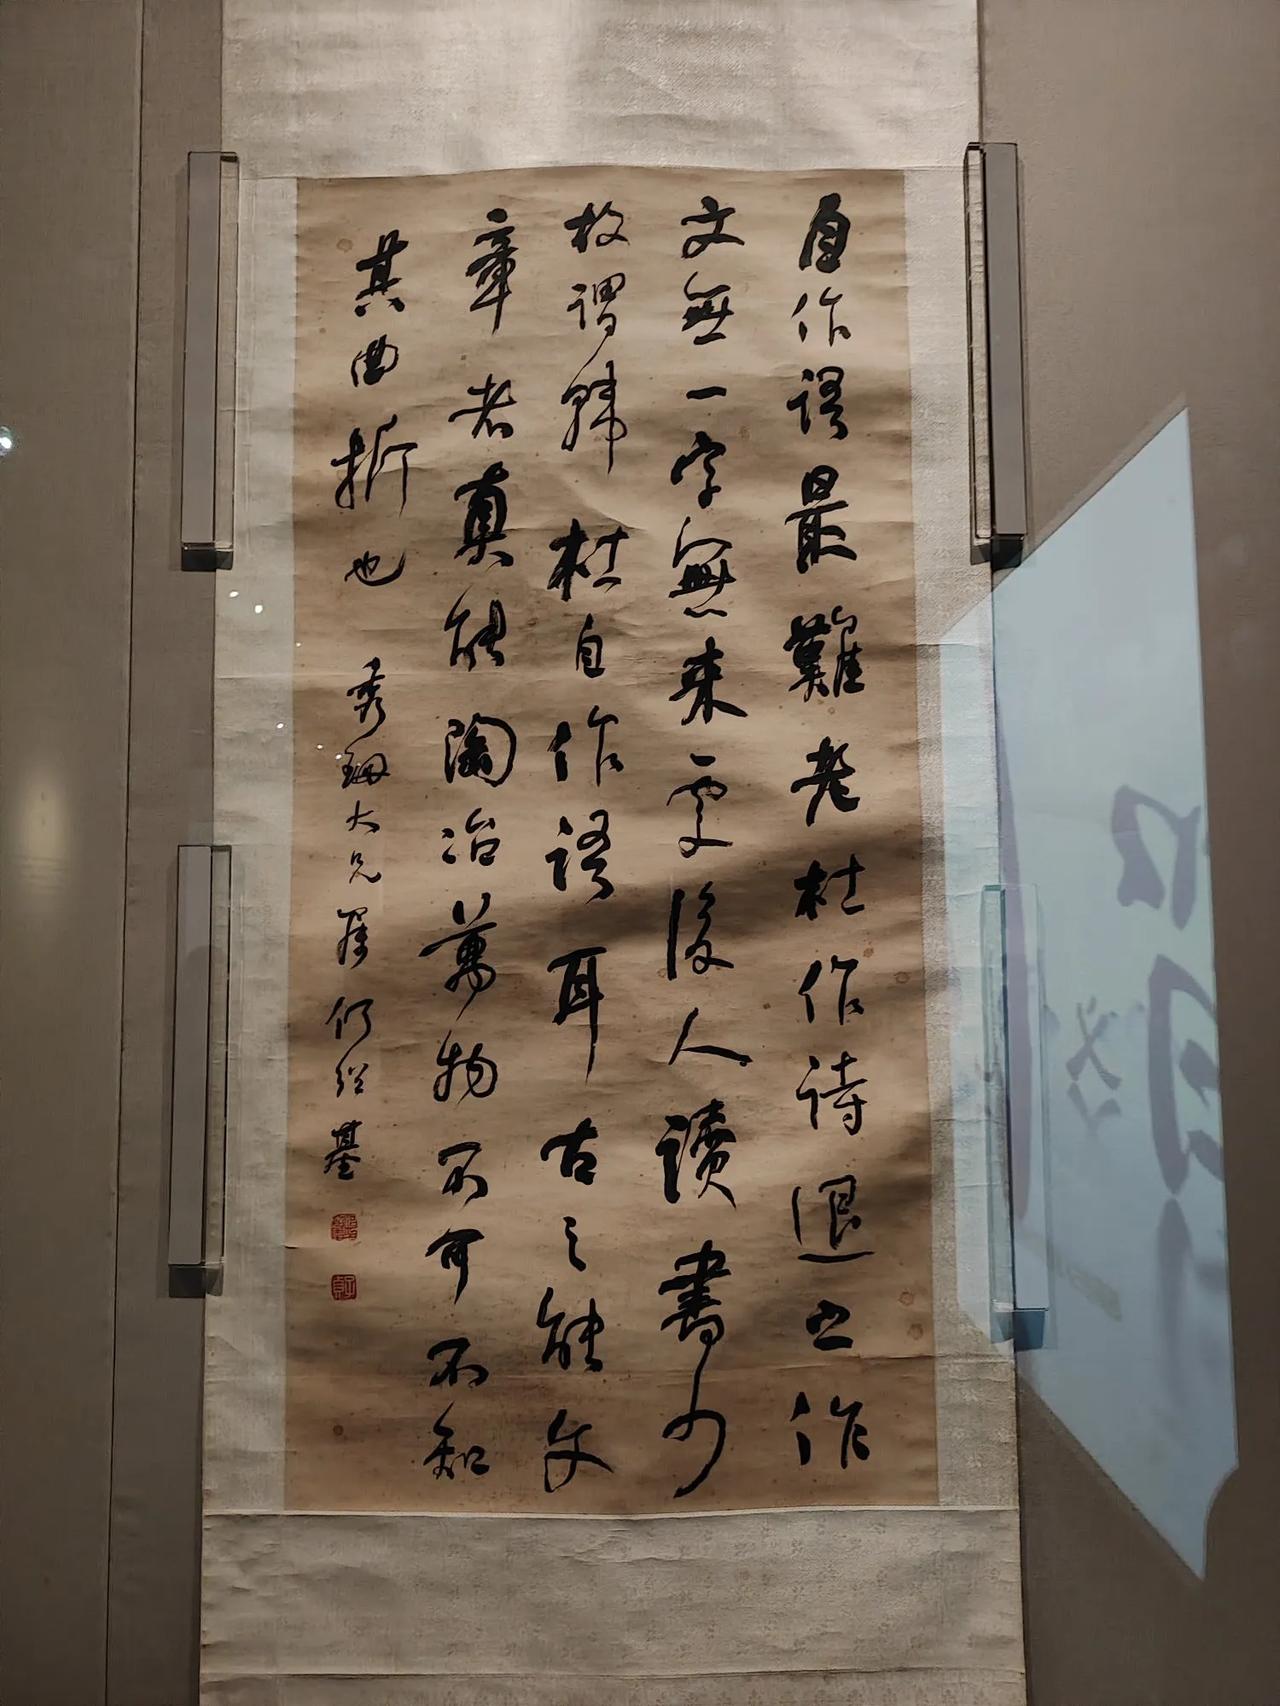 自作語最難老杜作詩退之作
文無一字無来處後人讀書少
故謂韓杜自作語耳古之能文
章者真能陶冶萬物不可不知
其曲折也 秀珊大兄屬 何紹基
子貞